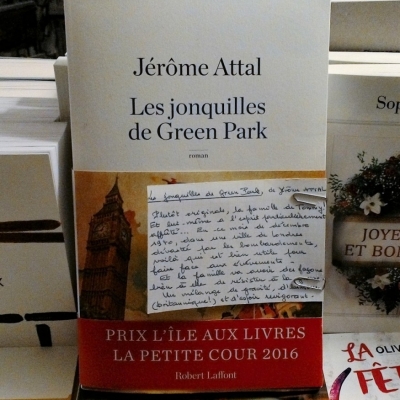 Jérôme Attal
Les jonquilles
de Green Park
roman
Les jonquilles de Green Park, de Jérôme ATTAL
Plutôt originale, la famille de Tommy!
Et lui-même a l'esprit particulièrement
affûté... En ce mois de décembre
1940, dans une ville de Londres
dévastée par les bombardements,
voilà qui est bien utile pour
faire face aux événements.
Et la famille va avoir des façons
bien à elle de résister à la
Un mélange de gravité, d'
(britannique!) et d'espoir revigorant.
PRIX L'ÎLE AUX LIVRES
LA PETITE COUR 2016
Robert Laffont
Sop
JOYE
ET BO
OLIV
LA
FÊT